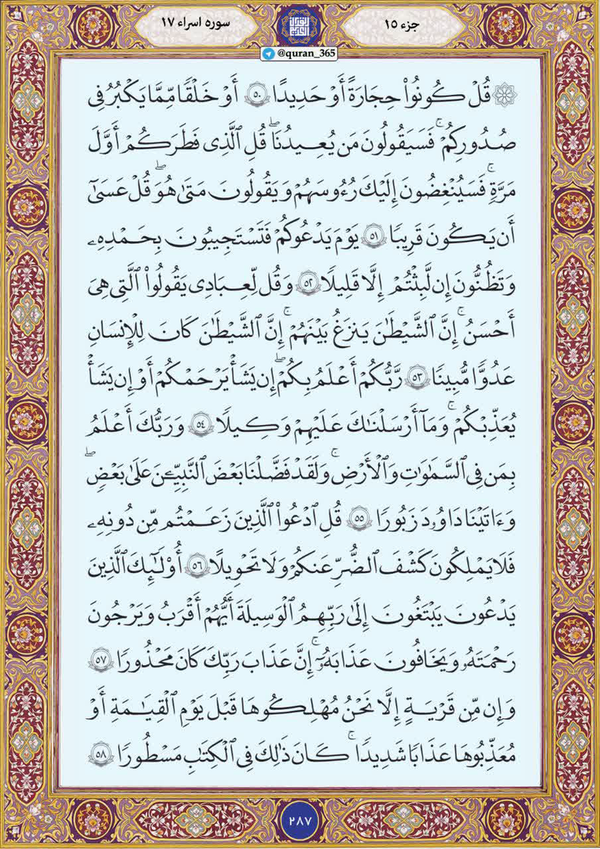 جزء ۱۵
سوره اسراء ۱۷
@quran_365
۞ قُلْ كُونُوا۟ حِجَارَةً أَوْ حَدِيدًا ۝٥٠ أَوْ خَلْقًا مِّمَّا يَكْبُرُ فِى
صُدُورِكُمْ ۚ فَسَيَقُولُونَ مَن يُعِيدُنَا ۖ قُلِ ٱلَّذِى فَطَرَكُمْ أَوَّلَ
مَرَّةٍ ۚ فَسَيُنْغِضُونَ إِلَيْكَ رُءُوسَهُمْ وَيَقُولُونَ مَتَىٰ هُوَ ۖ قُلْ عَسَىٰٓ
أَن يَكُونَ قَرِيبًا ۝٥١ يَوْمَ يَدْعُوكُمْ فَتَسْتَجِيبُونَ بِحَمْدِهِۦ
وَتَظُنُّونَ إِن لَّبِثْتُمْ إِلَّا قَلِيلًا ۝٥٢ وَقُل لِّعِبَادِى يَقُولُوا۟ ٱلَّتِى هِىَ
أَحْسَنُ ۚ إِنَّ ٱلشَّيْطَٰنَ يَنزَغُ بَيْنَهُمْ ۚ إِنَّ ٱلشَّيْطَٰنَ كَانَ لِلْإِنسَٰنِ
عَدُوًّا مُّبِينًا ۝٥٣ رَّبُّكُمْ أَعْلَمُ بِكُمْ ۖ إِن يَشَأْ يَرْحَمْكُمْ أَوْ إِن يَشَأْ
يُعَذِّبْكُمْ ۚ وَمَآ أَرْسَلْنَٰكَ عَلَيْهِمْ وَكِيلًا ۝٥٤ وَرَبُّكَ أَعْلَمُ
بِمَن فِى ٱلسَّمَٰوَٰتِ وَٱلْأَرْضِ ۗ وَلَقَدْ فَضَّلْنَا بَعْضَ ٱلنَّبِيِّـۧنَ عَلَىٰ بَعْضٍ ۖ
وَءَاتَيْنَا دَاوُۥدَ زَبُورًا ۝٥٥ قُلِ ٱدْعُوا۟ ٱلَّذِينَ زَعَمْتُم مِّن دُونِهِۦ
فَلَا يَمْلِكُونَ كَشْفَ ٱلضُّرِّ عَنكُمْ وَلَا تَحْوِيلًا ۝٥٦ أُو۟لَٰٓئِكَ ٱلَّذِينَ
يَدْعُونَ يَبْتَغُونَ إِلَىٰ رَبِّهِمُ ٱلْوَسِيلَةَ أَيُّهُمْ أَقْرَبُ وَيَرْجُونَ
رَحْمَتَهُۥ وَيَخَافُونَ عَذَابَهُۥٓ ۚ إِنَّ عَذَابَ رَبِّكَ كَانَ مَحْذُورًا ۝٥٧
وَإِن مِّن قَرْيَةٍ إِلَّا نَحْنُ مُهْلِكُوهَا قَبْلَ يَوْمِ ٱلْقِيَٰمَةِ أَوْ
مُعَذِّبُوهَا عَذَابًا شَدِيدًا ۚ كَانَ ذَٰلِكَ فِى ٱلْكِتَٰبِ مَسْطُورًا ۝٥٨
۲۸۷